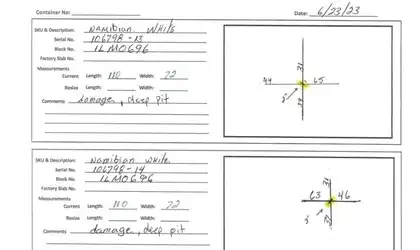 Container No: Date: 6/23/23
SKU & Description: Namibian White
Serial No. 106298-13
Block No. ILM0696
Factory Slab No.
Measurements
Current Length: 110 Width: 22
Resize Length: Width:
Comments damage, deep pit
31
44 65
2"
39
SKU & Description: Namibian White.
Serial No. 106298-14
Block No. ILM0696
Factory Slab No.
Measurements
Current Length: 110 Width: 22
Resize Length: Width:
Comments damage, deep pit
63 46